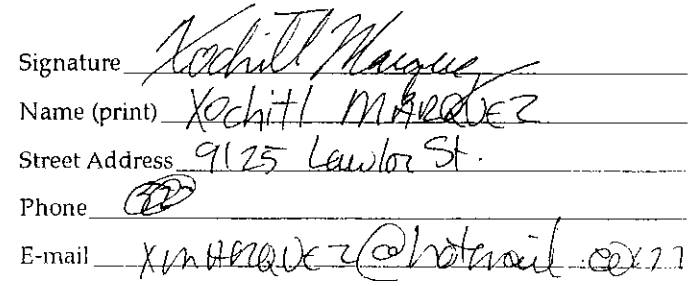 Signature Xochitl Marquez
Name (print) Xochitl MARQUEZ
Street Address 9125 Lawlor St.
Phone
E-mail XMMARQUEZ@hotmail.com